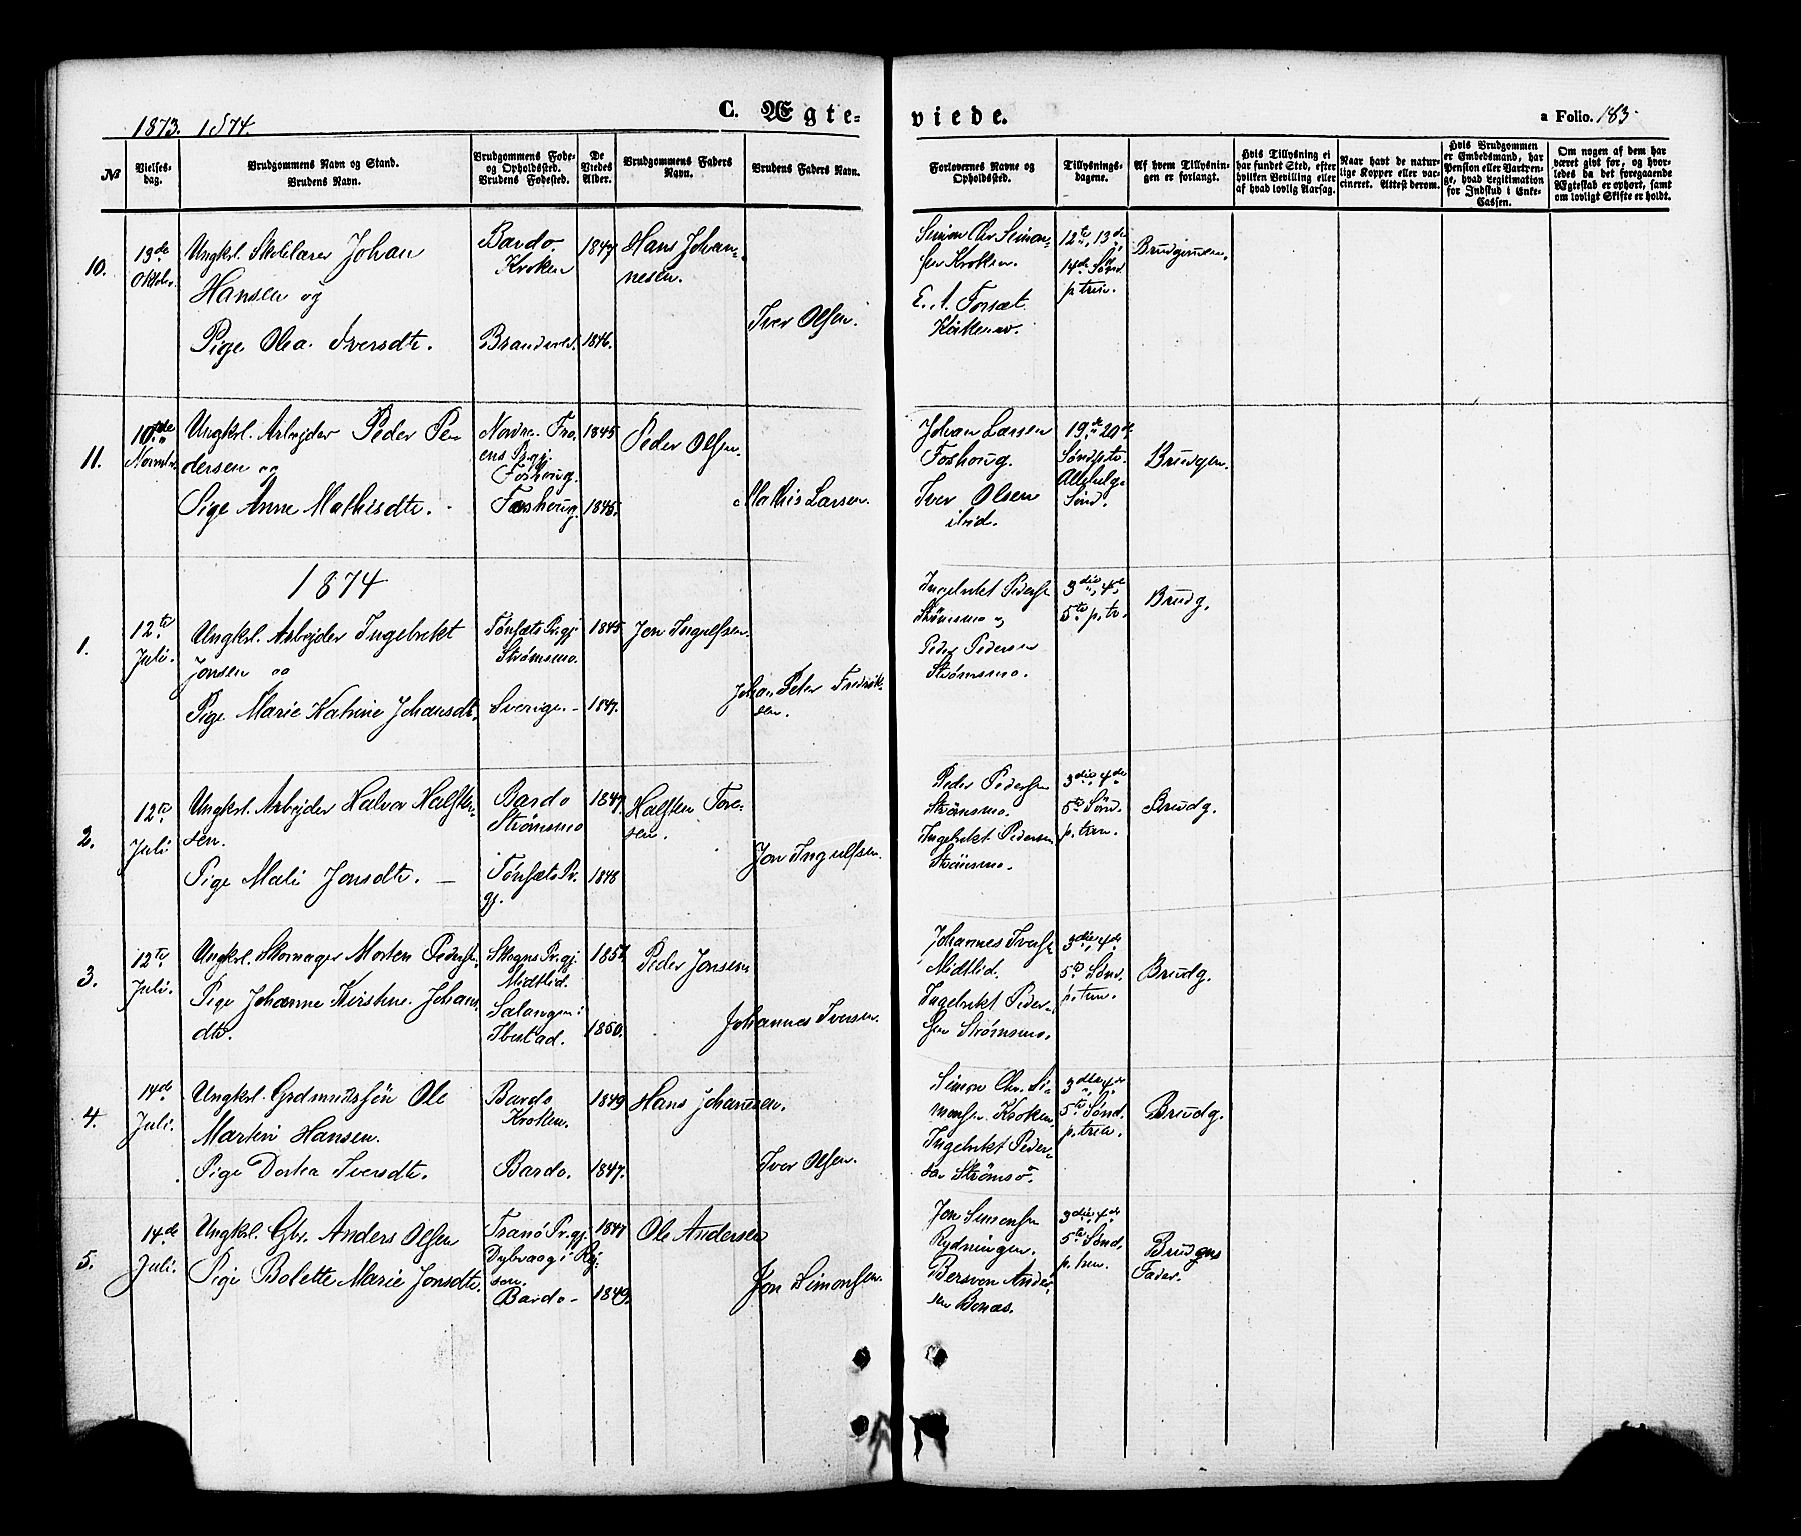 1873. 1874.
C. Ægteviede.
a Folio. 183.
№
Vielsesdag.
Brudgommens Navn og Stand.
Brudens Navn.
Brudgommens Føde- og Opholdsted.
Brudens Fødested.
De Viedes Alder.
Brudgommens Faders Navn.
Brudens Faders Navn.
Forlovernes Navne og Opholdsted.
Tillysningsdagene.
Af hvem Tillysningen er forlangt.
Hvis Tillysning ei har fundet Sted, efter hvilken Bevilling eller af hvad lovlig Aarsag.
Naar havt de naturlige Kopper eller vaccineret. Attest derom.
Hvis Brudgommen er Embedsmand, har Pension eller Vartpenge, hvad Legitimation for Indskud i Enke-Cassen.
Om nogen af dem har været gift før, og hvorledes da det foregaaende Ægteskab er ophørt, samt om lovligt Skifte er holdt.
10.
13de
Oktober.
Ungkrl. Skolelærer Johan
Hansen og
Pige Olea Iversdtr.
Bardo.
Kroken
1847
Hans Johan-
nesen.
Iver Olsen.
1846.
Simon Chr. Simon-
sen Kroken.
E. A. Forsæt
12te, 13de
14de Sønd
p. trin.
Brudgommen.
11.
10de
Novemb.
Ungkrl. Arbejder Peder Pe-
dersen og
Pige Anne Mathisdtr.
Nordre Fro-
ens Prgj.
Foshoug.
Foshoug.
1845
1845.
Peder Olsen.
Mathis Larsen.
Johan Larsen
Foshoug.
Iver Olsen
ibid.
19de 20de
Søndp.tr.
Allehelg.
Sønd.
Brudgm.
1874
1.
12te
Juli.
Ungkrl. Arbejder Ingebrikt
Jonsen og
Pige Marie Katrine Johansdt.
Tønsæts Prgj.
Strømsmo.
Sverige.
1845.
1847.
Jon Ingulfsen.
Johan Peter Fredrik-
sen.
Ingebrikt Peders.
Strømsmo og
Peder Pedersen
Strømsmo.
3die, 4de
5te p. tr.
Brudg.
2.
12te
Juli
Ungkrl. Arbejder Halvor Halsten-
sen.
Pige Mali Jonsdtr.
Bardo
Strømsmo
Tønsæts Pr.
gj.
1847.
1848
Halsten Tore-
sen.
Jon Ingulfsen.
Peder Pedersen
Strømsmo.
Ingebrikt Pedersen
Strømsmo.
3die, 4de
5te Sønd.
p. trin.
Brudg.
3.
12te
Juli.
Ungkrl. Skomager Morten Peders.
Pige Johanne Kirstine Johans-
dtr.
Skogns Prgj.
Midtlid.
Salangen i
Ibestad.
1851.
1850.
Peder Jonsen
Johannes Iversen.
Johannes Ivers.
Midtlid.
Ingebrikt Peder-
sen Strømsmo.
3die, 4de
5te Sønd.
p. trin.
Brudg.
4.
14de
Juli.
Ungkrl. Grdmndssøn Ole
Martin Hansen.
Pige Dortea Iversdtr.
Bardo
Kroken.
Bardo.
1849
1847.
Hans Johannesen.
Iver Olsen.
Simon Chr. Si-
monsen Kroken
Ingebrikt Peder-
sen Strømsmo.
3die, 4de
5te Sønd.
p. trin.
Brudg.
5.
14de
Juli.
Ungkrl. Gbr. Anders Olsen
Pige Bolette Marie Jonsdtr.
Tranø Prgj.
Bardo
1847
1849.
Ole Andersen
Jon Simonsen.
Jon Simonsen
Rydningen.
Bersvon Ander-
sen Bonæs.
3die, 4de
5te Sønd.
p. trin.
Brudgms
Fader.